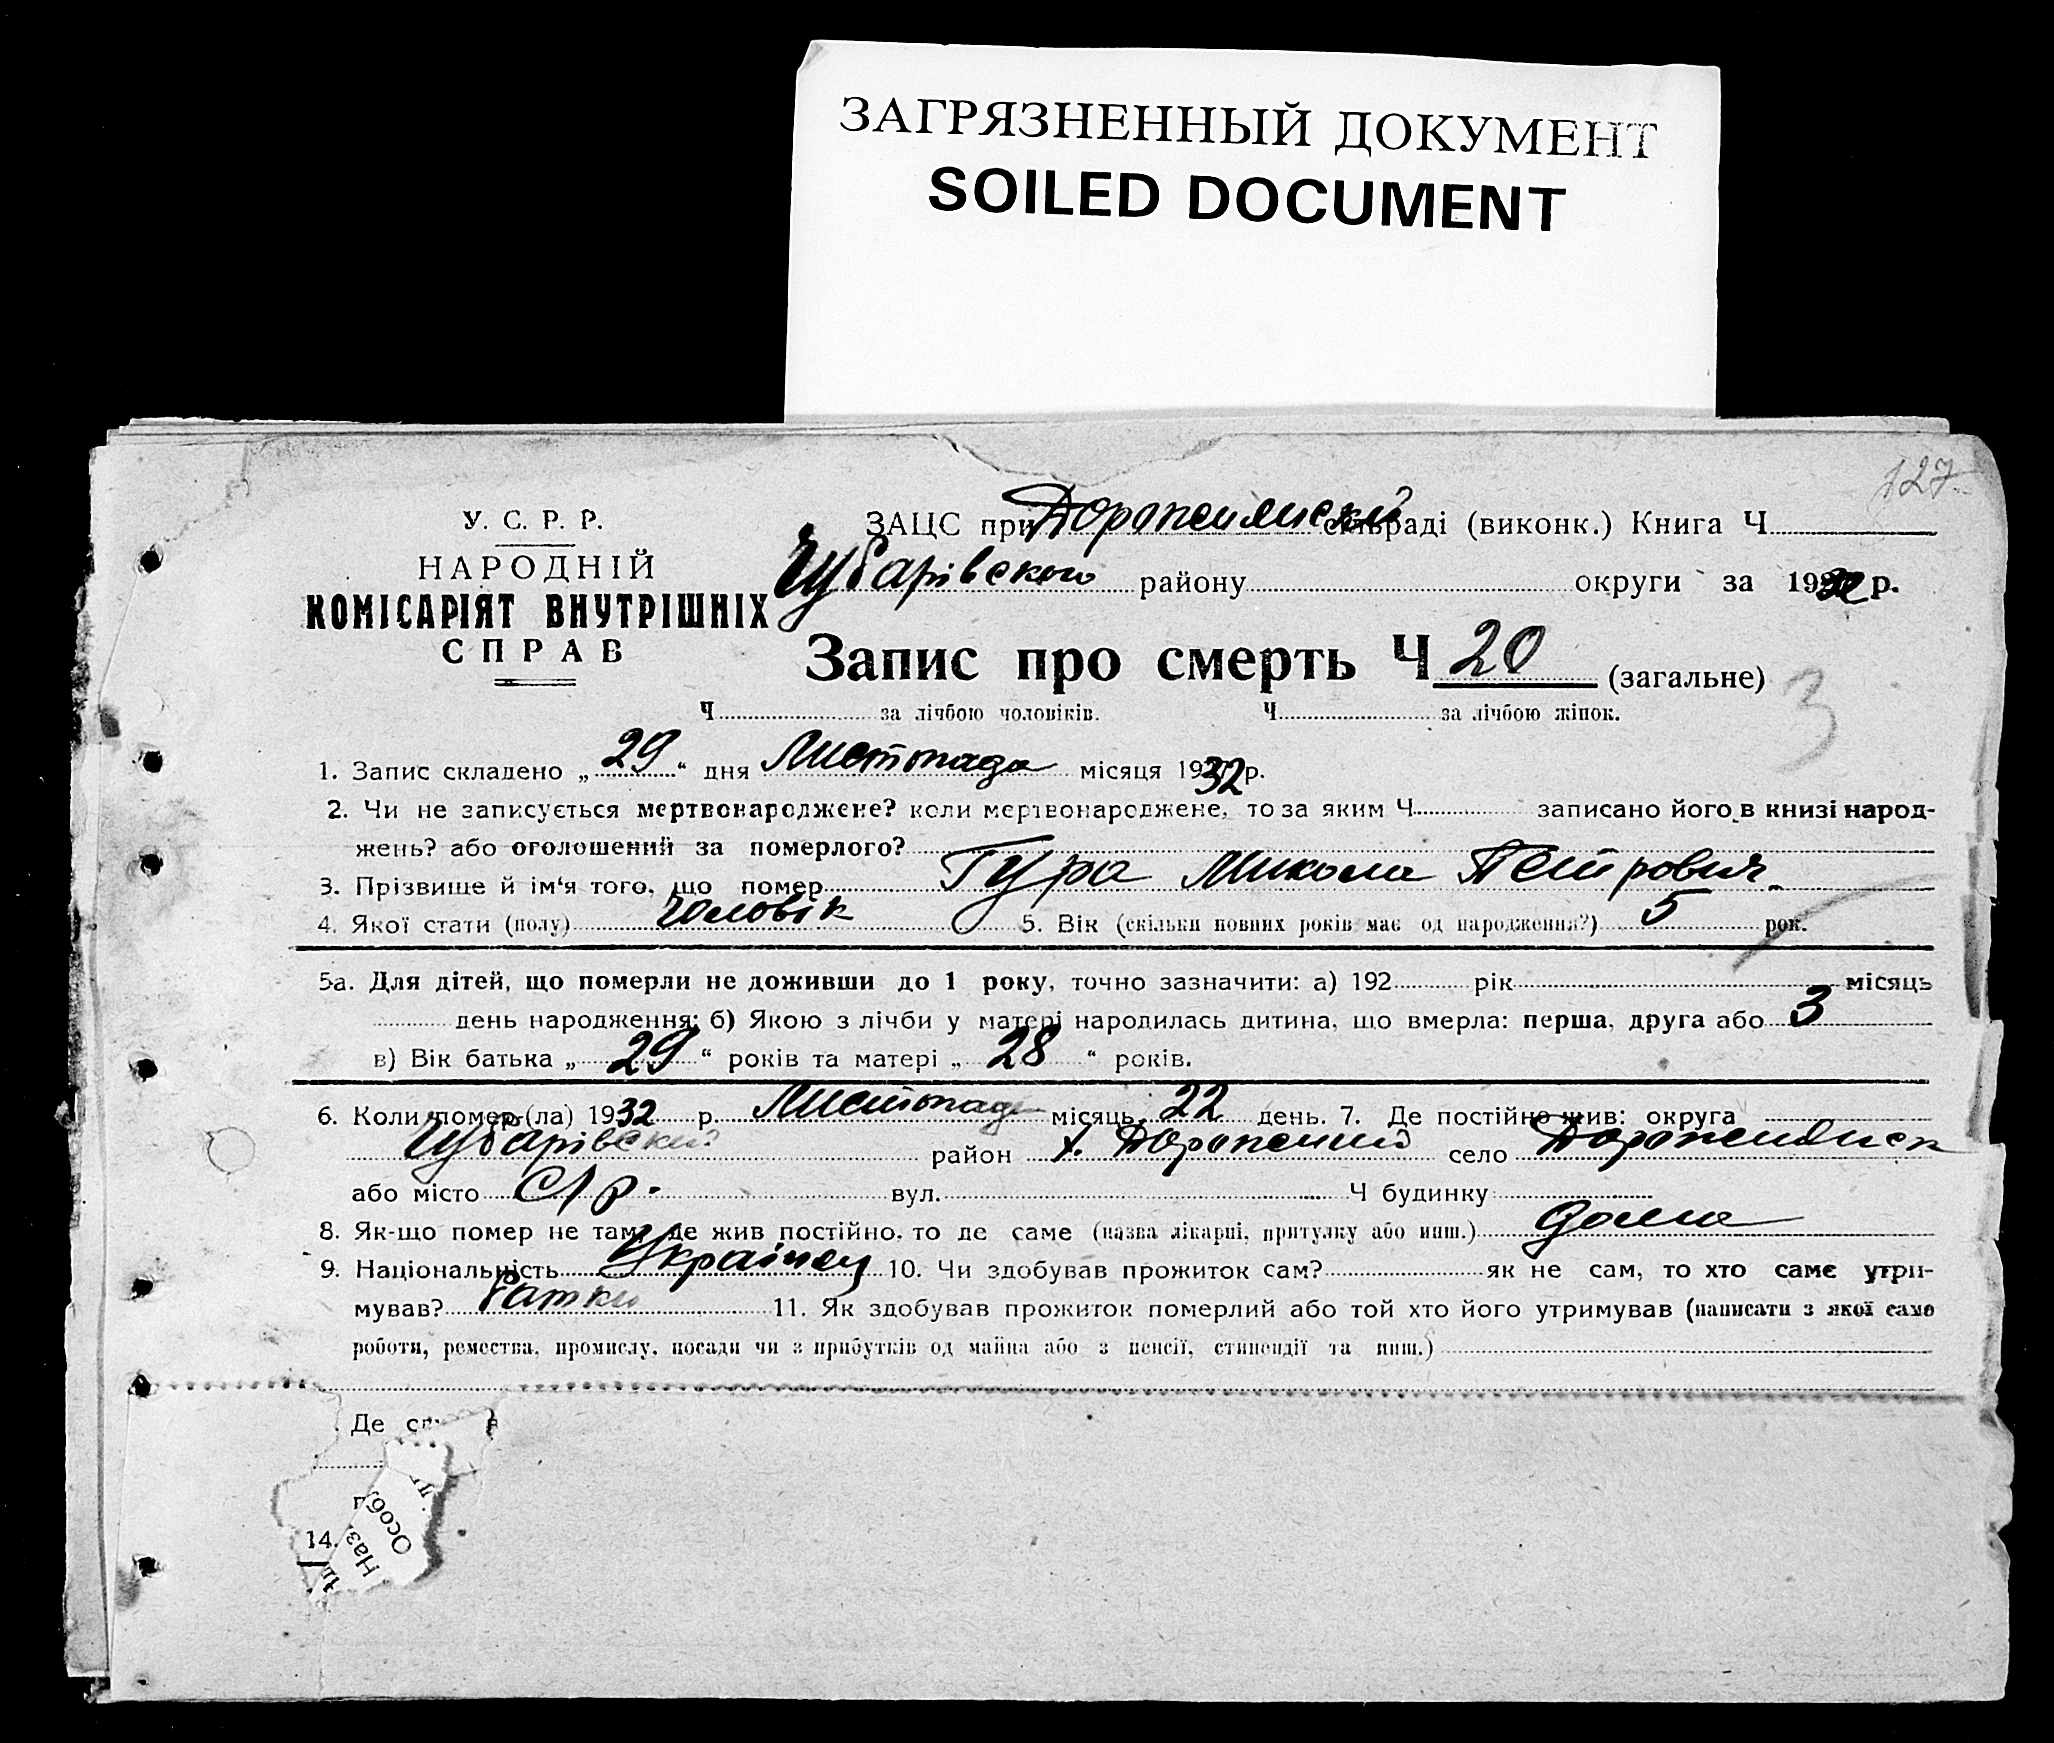 ЗАГРЯЗНЕННЫЙ ДОКУМЕНТ
SOILED DOCUMENT
127
У. С. Р. Р.
НАРОДНІЙ
КОМІСАРІЯТ ВНУТРІШНІХ
СПРАВ
ЗАЦС при сільраді (виконк.) Книга Ч
Чубарівського району округи за 1932 р.
Запис про смерть Ч 20 (загальне)
Ч за лічбою чоловіків. Ч за лічбою жінок.
3
1. Запис складено „ 29 “ дня Листопада місяця 1932 р.
2. Чи не записується мертвонароджене? коли мертвонароджене, то за яким Ч записано його в книзі народ-
жень? або оголошений за померлого?
3. Прізвище й ім'я того, що помер Гура Микола Петрович
4. Якої стати (полу) Чоловік 5. Вік (скільки повних років має од народження?) 5 рок.
5а. Для дітей, що померли не доживши до 1 року, точно зазначити: а) 192 рік місяць
день народження; б) Якою з лічби у матері народилась дитина, що вмерла: перша, друга або 3
в) Вік батька „ 29 “ років та матері „ 28 “ років.
6. Коли помер (ла) 1932 р. Листопад місяць 22 день. 7. Де постійно жив: округа
Чубарівский район х. село
або місто С/р. вул. Ч будинку
8. Як-що помер не там, де жив постійно, то де саме (назва лікарні, притулку або инш.) дома
9. Національність Українец 10. Чи здобував прожиток сам? як не сам, то хто саме утри-
мував? 11. Як здобував прожиток померлий або той хто його утримував (написати з якої само
роботи, ремества, промислу, посади чи з прибутків од майна або з пенсії, стипендії та инш.)
Де
14.
Наз
Особ